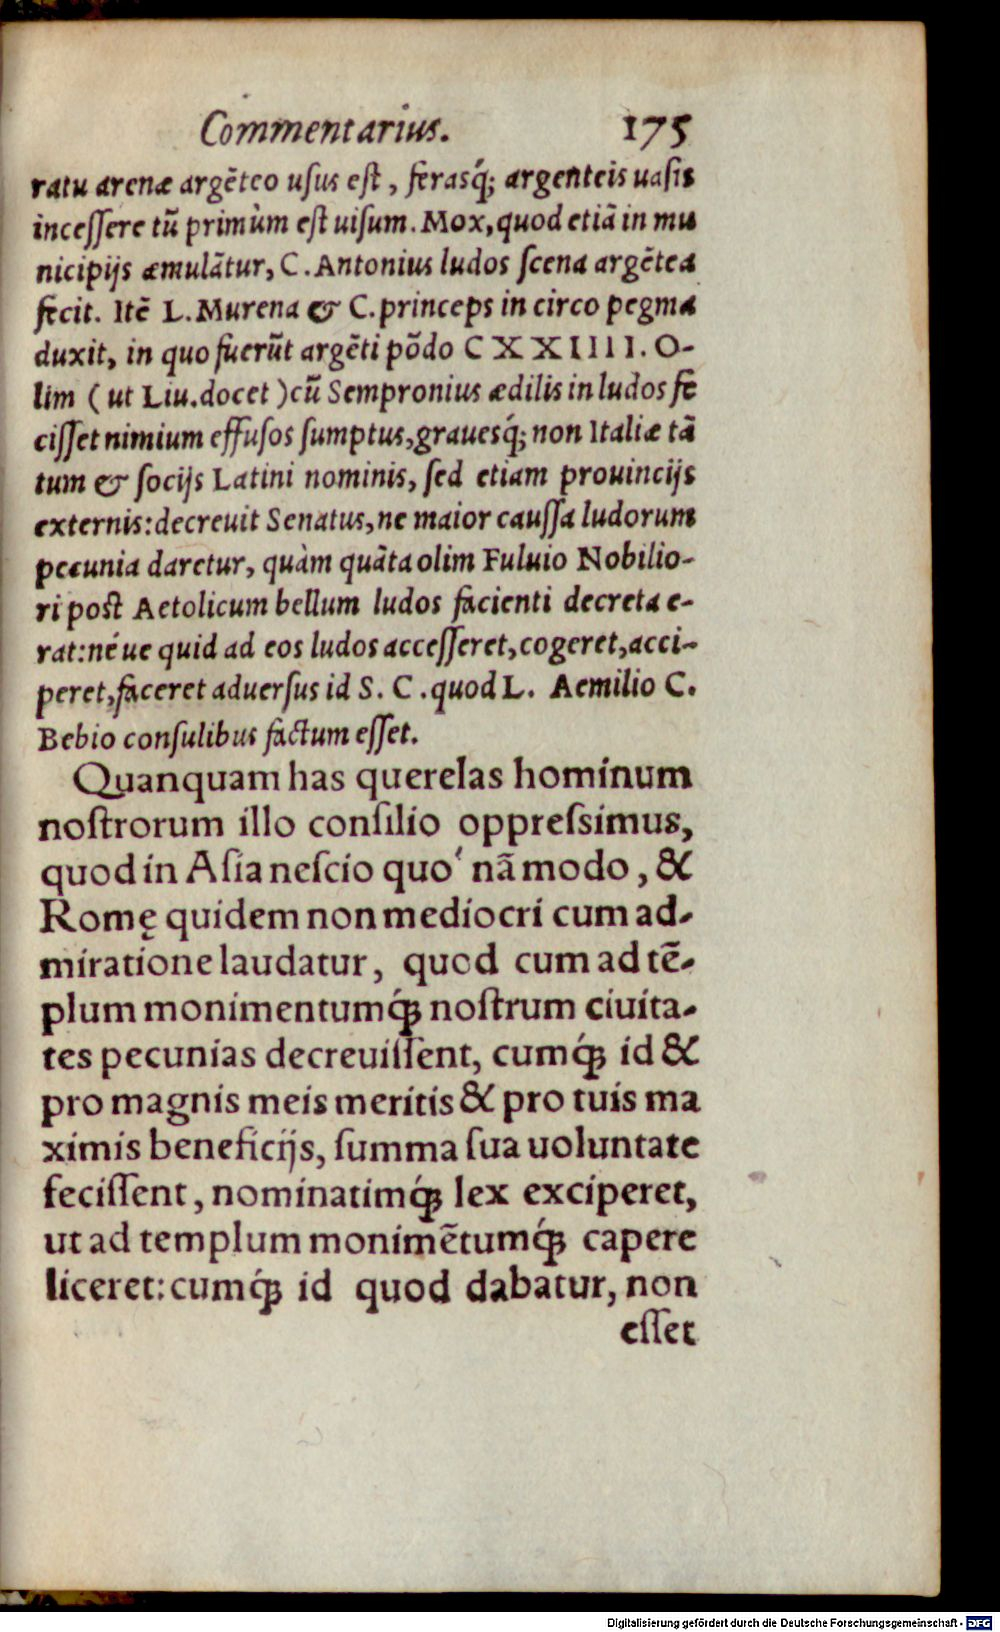 Commentarius. 175
ratu arenæ argẽteo usus est, ferasq́; argenteis uasis
incessere tũ primùm est uisum. Mox, quod etiã in mu
nicipijs æmulãtur, C. Antonius ludos scena argẽtea
fecit. Itẽ L. Murena & C. princeps in circo pegma
duxit, in quo fuerũt argẽti põdo C X X I I I I. O-
lim (ut Liu. docet) cũ Sempronius ædilis in ludos fe
cisset nimium effusos sumptus, grauesq́; non Italiæ tã
tum & socijs Latini nominis, sed etiam prouincijs
externis: decreuit Senatus, ne maior caussa ludorum
pecunia daretur, quàm quãta olim Fuluio Nobilio-
ri post Aetolicum bellum ludos facienti decreta e-
rat: néue quid ad eos ludos accesseret, cogeret, acci-
peret, faceret aduersus id S. C. quod L. Aemilio C.
Bebio consulibus factum esset.
Quanquam has querelas hominum
nostrorum illo consilio oppressimus,
quod in Asia nescio quo' nã modo, &
Romę quidem non mediocri cum ad-
miratione laudatur, quod cum ad tẽ-
plum monimentumq́; nostrum ciuita-
tes pecunias decreuissent, cumq́; id &
pro magnis meis meritis & pro tuis ma
ximis beneficijs, summa sua uoluntate
fecissent, nominatimq́; lex exciperet,
ut ad templum monimẽtumq́; capere
liceret: cumq́; id quod dabatur, non
esset
Digitalisierung gefördert durch die Deutsche Forschungsgemeinschaft - DFG